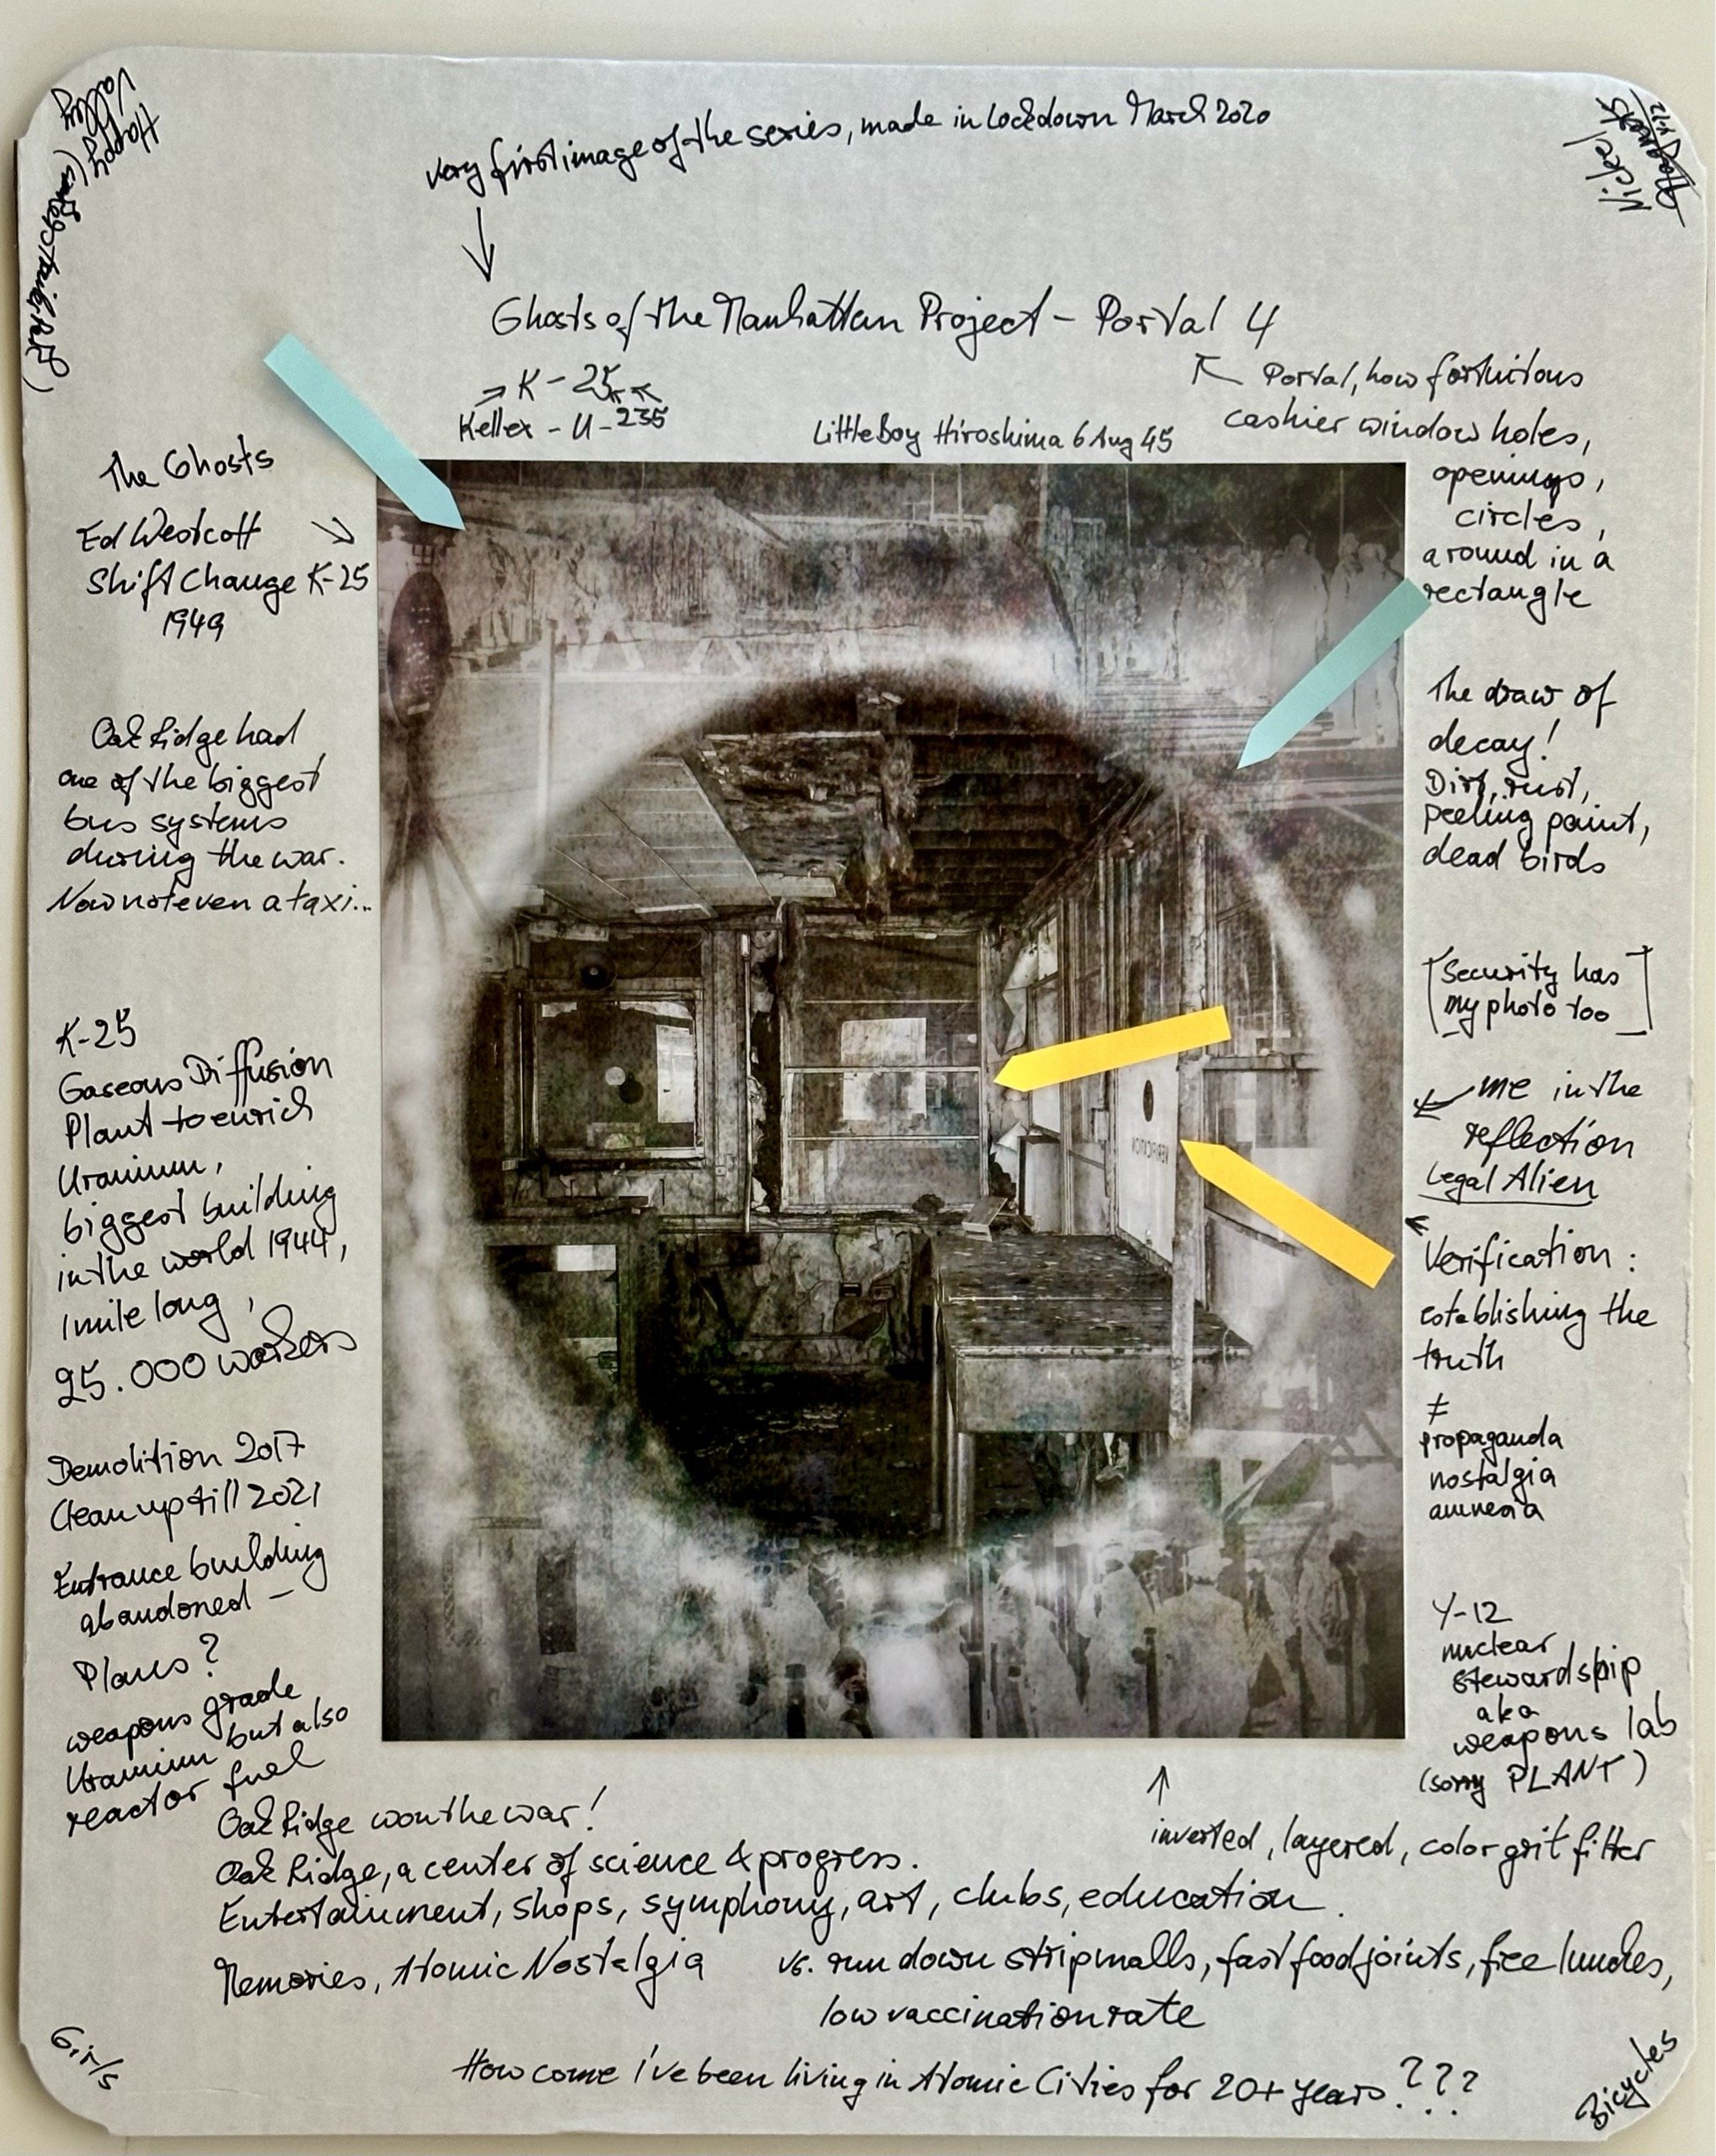 Happy
Valley
(workers trailer park)
Nickel
Magnets
Y-12
very first image of the series, made in Lockdown March 2020
Ghosts of the Manhattan Project – Portal 4
→ K – 25
Kellex – U – 235
Little Boy Hiroshima 6 Aug 45
Portal, how fortuitous
cashier window holes,
openings,
circles,
around in a
rectangle
The Ghosts
Ed Westcott
Shift Change K-25
1949
Oak Ridge had
one of the biggest
bus systems
during the war.
Now not even a taxi...
K-25
Gaseous Diffusion
Plant to enrich
Uranium,
biggest building
in the world 1944,
1 mile long,
25.000 workers
Demolition 2017
Clean up till 2021
Entrance building
abandoned –
Plans?
weapons grade
Uranium but also
reactor fuel
The draw of
decay!
Dirt, rust,
peeling paint,
dead birds
[Security has
my photo too]
me in the
reflection
Legal Alien
VERIFICATION
Verification:
establishing the
truth
≠
propaganda
nostalgia
amnesia
Y-12
nuclear
stewardship
aka
weapons lab
(sorry PLANT)
inverted, layered, color grit filter
Oak Ridge won the war!
Oak Ridge, a center of science & progress.
Entertainment, shops, symphony, art, clubs, education.
Memories, Atomic Nostalgia vs. run down stripmalls, fast food joints, free lunches,
low vaccination rate
How come I've been living in Atomic Cities for 20+ years???
Girls
Bicycles